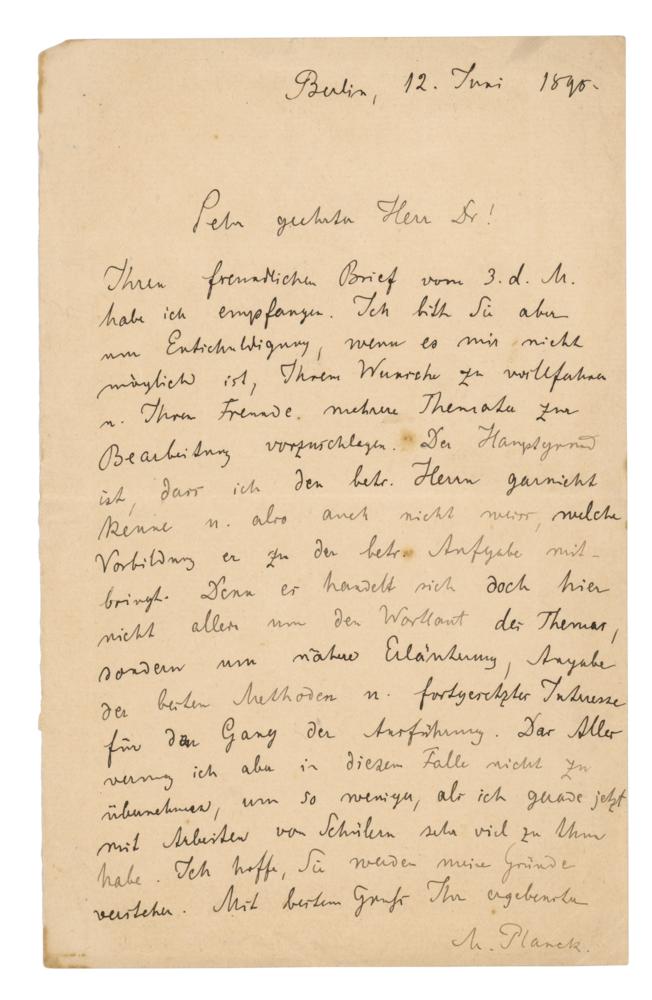 Berlin, 12. Juni 1895.
Sehr geehrter Herr Dr!
Ihren freundlichen Brief vom 3. d. M.
habe ich empfangen. Ich bitte Sie aber
um Entschuldigung, wenn es mir nicht
möglich ist, Ihrem Wunsche zu willfahren
u. Ihrem Freunde mehrere Themata zur
Bearbeitung vorzuschlagen. Der Hauptgrund
ist, dass ich den betr. Herrn garnicht
kenne u. also auch nicht weiss, welche
Vorbildung er zu der betr. Aufgabe mit-
bringt. Denn es handelt sich doch hier
nicht allein um den Wortlaut des Themas,
sondern um nähere Erläuterung, Angabe
der besten Methoden u. fortgesetztes Interesse
für den Gang der Ausführung. Das Alles
vermag ich aber in diesem Falle nicht zu
übernehmen, um so weniger, als ich gerade jetzt
mit Arbeiten von Schülern sehr viel zu thun
habe. Ich hoffe, Sie werden meine Gründe
verstehen. Mit bestem Gruss Ihr ergebenster
M. Planck.